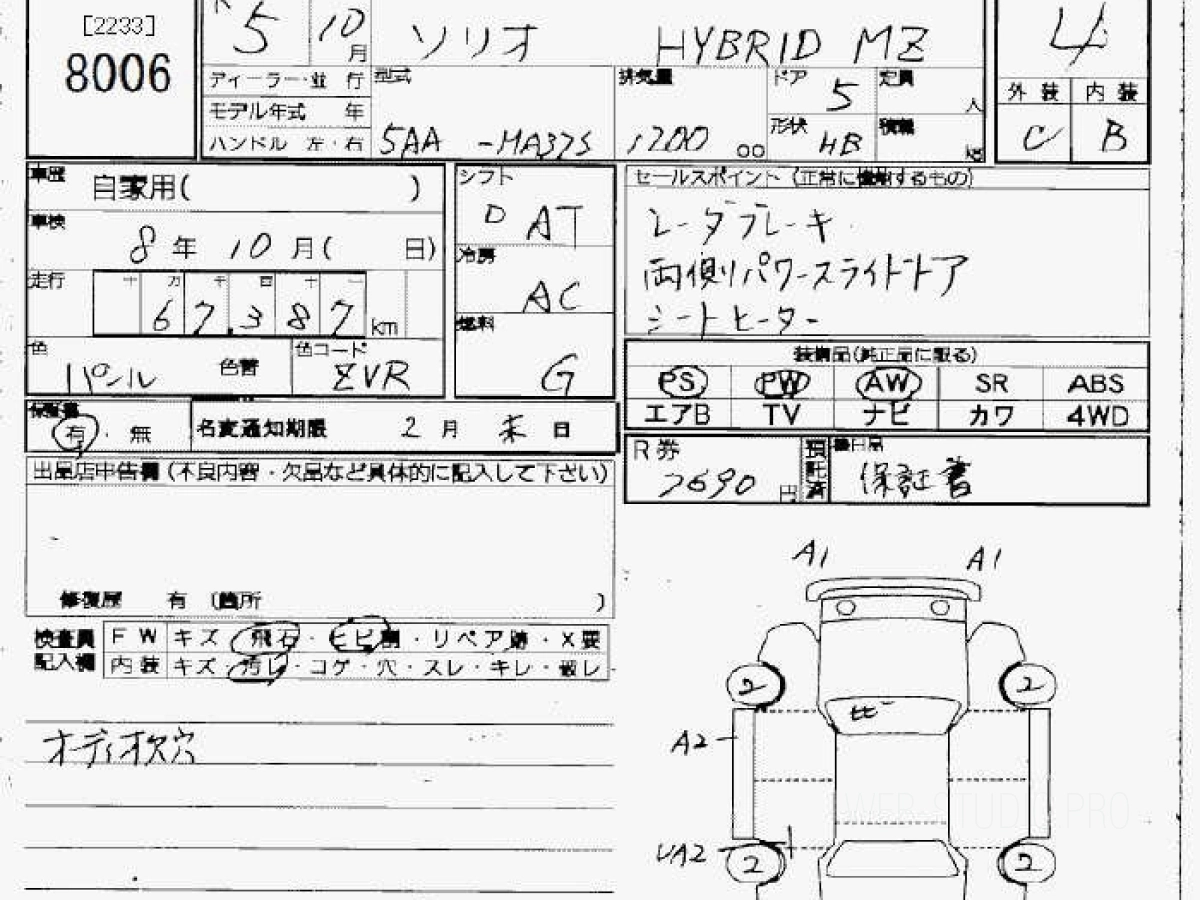 [2233]
8006
R 5 10 月
ソリオ HYBRID MZ
4
ディーラー・並 行
モデル年式 年
ハンドル 左・右
型式
5AA -MA37S
排気量
1200 cc
ドア 5
定員 人
形状 HB
積載 kg
外 装 内 装
C B
車歴 自家用( )
車検 8 年 10 月( 日)
走行 十 万 千 百 十 一
67,387 km
色 パール 色替
色コード ZVR
シフト D AT
冷房 AC
燃料 G
セールスポイント (正常に機能するもの)
レーダブレーキ
両側パワースライドドア
シートヒーター
装備品(純正品に限る)
PS PW AW SR ABS
エアB TV ナビ カワ 4WD
保証書 有 ・ 無
名変通知期限 2 月 末 日
R券 7690 円
預託済
後日品 保証書
出品店申告欄 (不良内容・欠品など具体的に記入して下さい)
修復歴 有 (箇所 )
検査員記入欄
FW キズ 飛石・ヒビ割・リペア跡・X要
内装 キズ 汚レ・コゲ・穴・スレ・キレ・破レ
オーディオ欠穴
A1 A1
2 2
ヒビ
A2
UA2
2 2
WEB STUDIO PRO